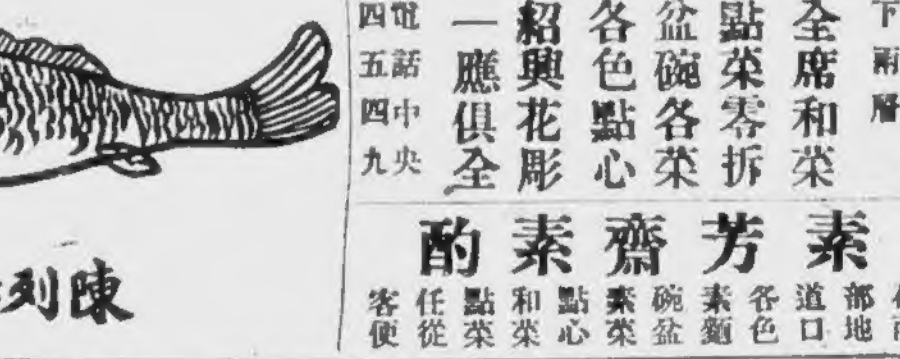 下兩層
全席和菜
點菜零拆
盆碗各菜
各色點心
紹興花彫
一應俱全
電話中央
四五四九
素芳齋素酌
部地
道口
各色
素麵
碗盆
素菜
點心
和菜
點菜
任從
客便
陳列